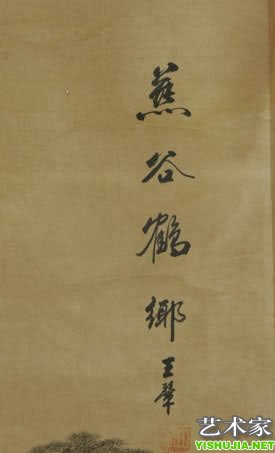 蕉谷鶴鄉
王翬
艺术家
YISHUJIA.NET